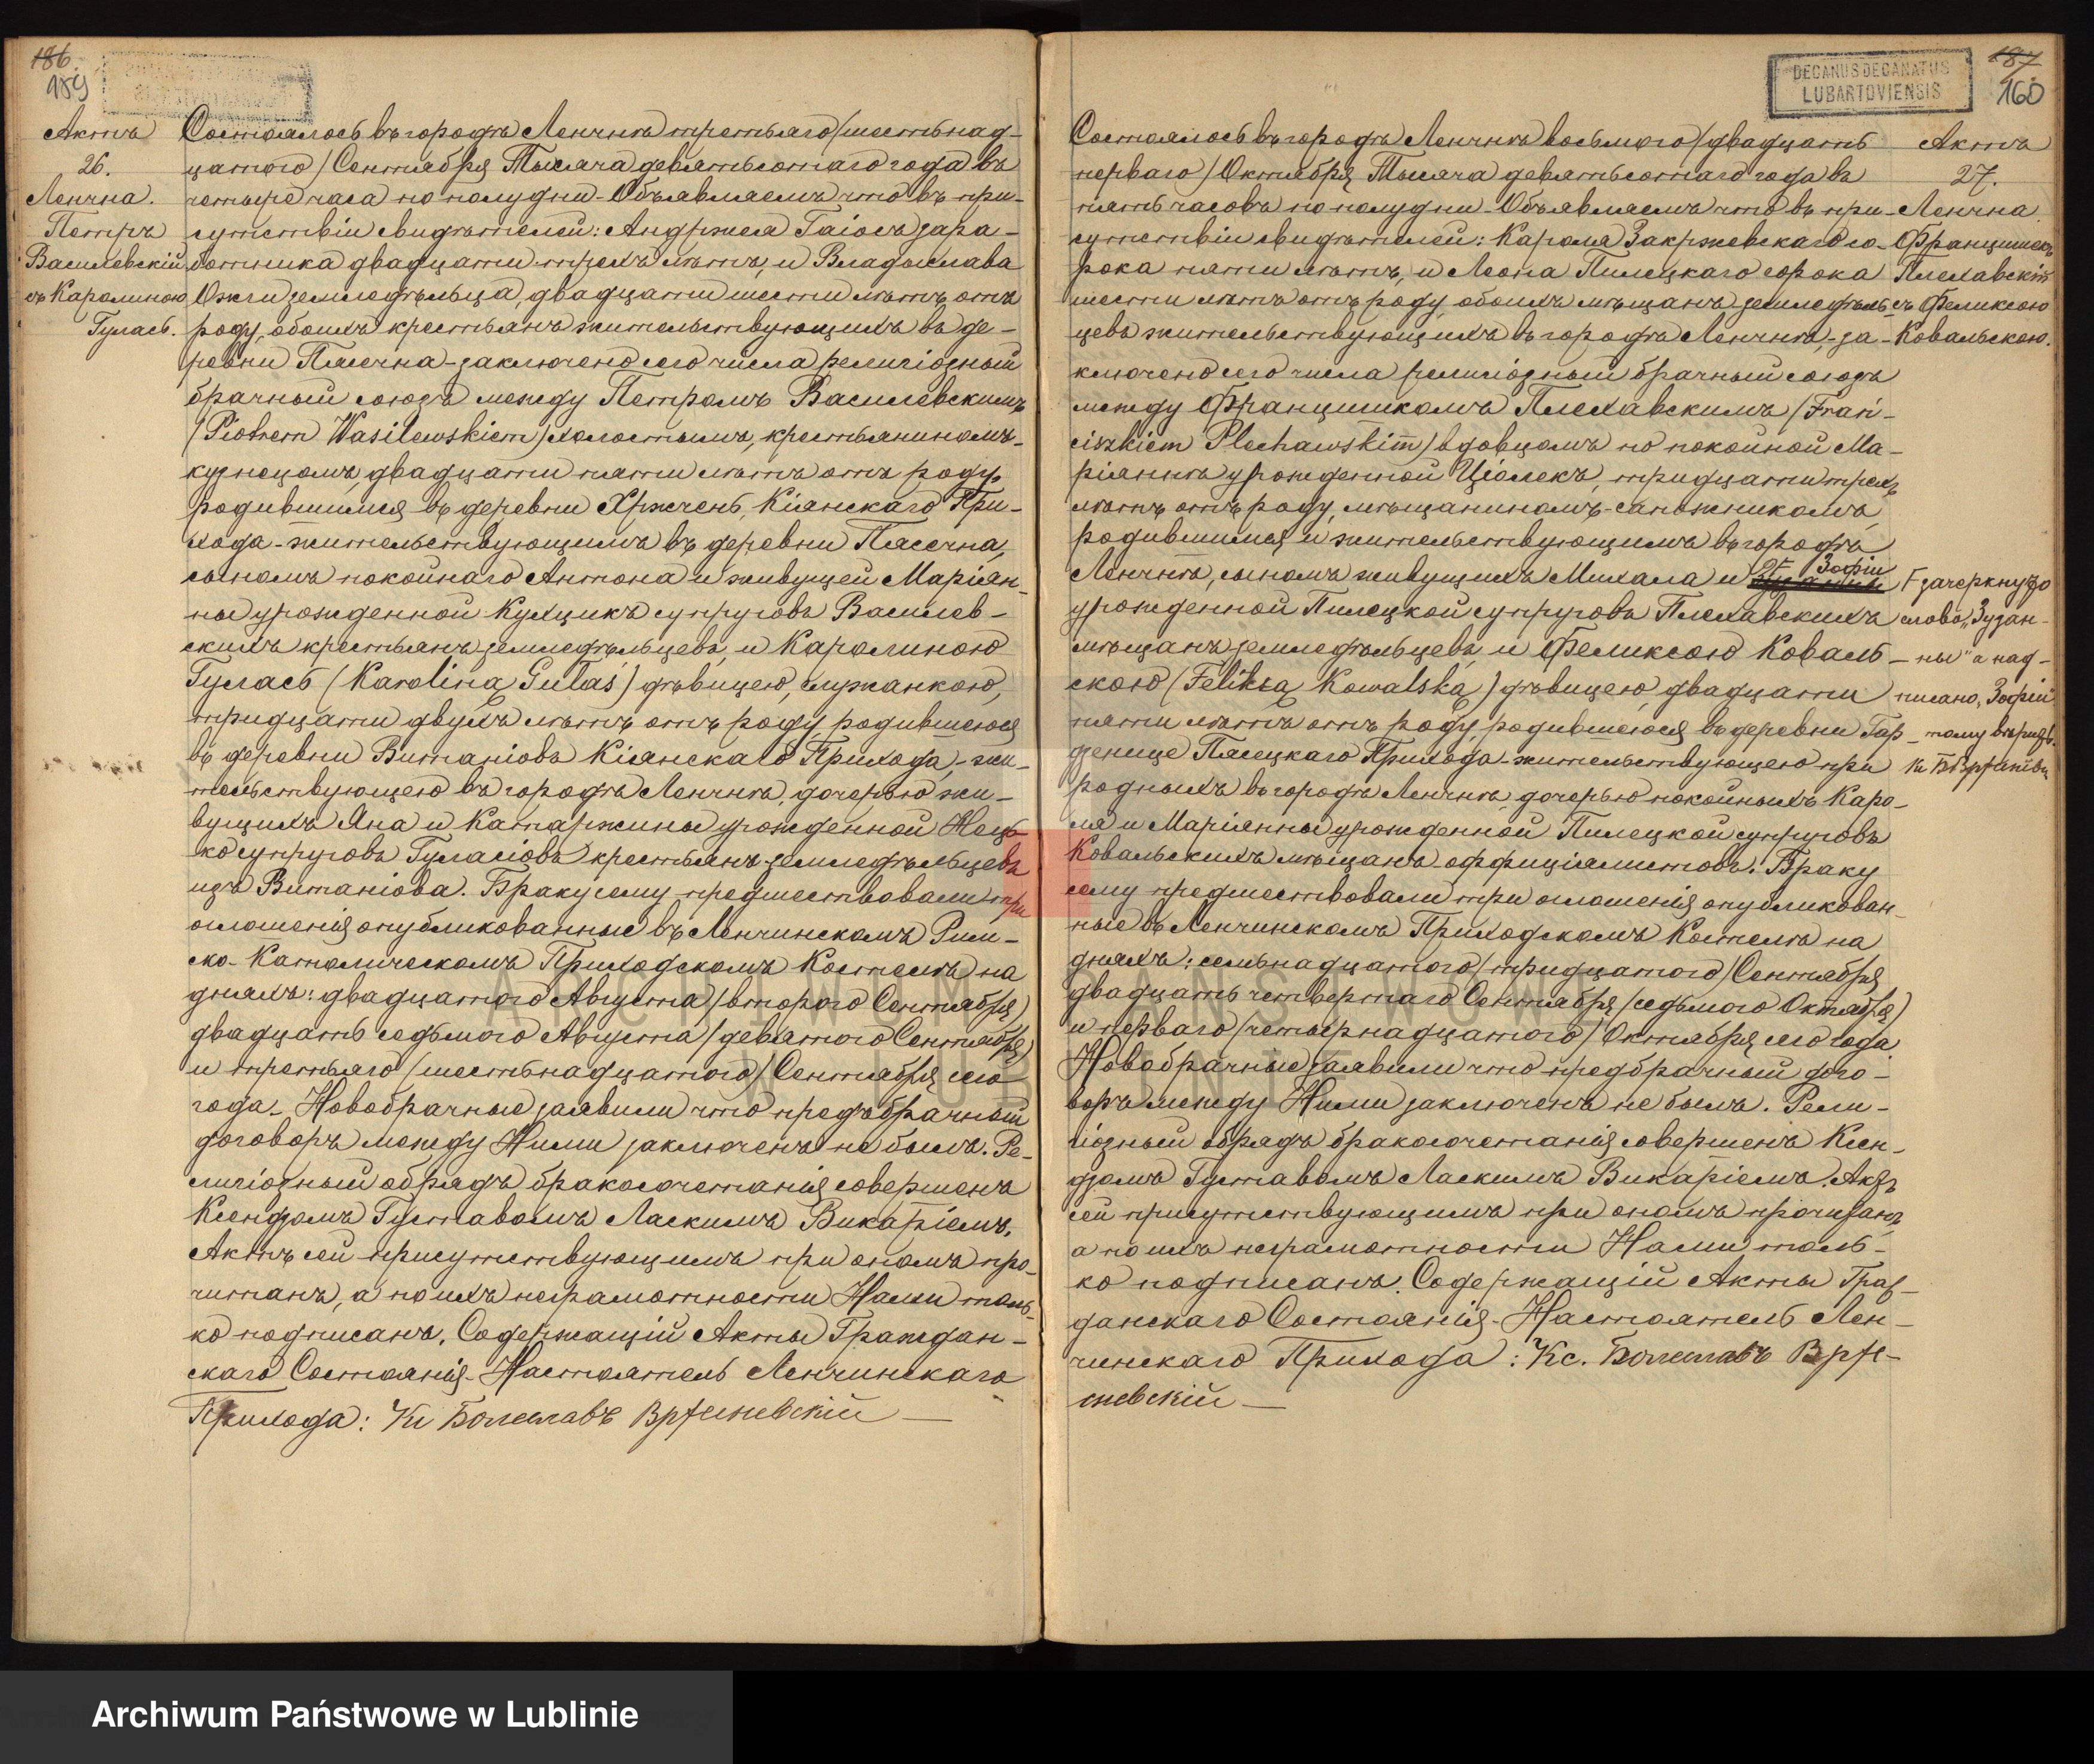 186.
159
Актъ
26.
Ленчна.
Петръ
Василевскій
съ Каролиною
Гулась.
Состоялось въ городѣ Ленчнѣ третьяго/шестьнад-
цатого/Сентября Тысяча девятьсотаго года въ
четыре часа по полудни - Объявляемъ что въ при-
сутствіи свидѣтелей: Андржея Гаіосъ зара-
ботника двадцати трехъ лѣтъ, и Владыслава
Ожги земледѣльца, двадцати шести лѣтъ отъ
роду, обоихъ крестьянъ жительствующихъ въ де-
ревни Пасечна - заключено сего числа религіозный
брачный союзъ между Петромъ Василевскимъ
/Piotrem Wasilewskiem/ холостымъ, крестьяниномъ-
кузнецомъ, двадцати пяти лѣтъ отъ роду,
родившимся въ деревни Хржчень, Кіянскаго При-
хода - жительствующимъ въ деревни Пасечна,
сыномъ покойнаго Антона и живущей Маріян-
ны урожденной Кухцикъ супруговъ Василев-
скихъ крестьянъ земледѣльцевъ, и Каролиною
Гулась (Karolina Gułaś) дѣвицею, служанкою,
тридцати двухъ лѣтъ отъ роду, родившеюся
въ деревни Витаніовъ Кіянскаго Прихода, - жи-
тельствующею въ городѣ Ленчнѣ, дочерью жи-
вущихъ Яна и Катаржины урожденной Ноць-
ко супруговъ Гуласіовъ крестьянъ земледѣльцевъ
изъ Витаніова. Браку сему предшествовали три
оглошенія опубликованные въ Ленчинскомъ Рим-
ско-Католическомъ Приходскомъ Костелѣ на
дняхъ: двадцатого Августа/второго Сентября)
двадцать седьмого Августа/девятого Сентября)
и третьяго (шестьнадцатого) Сентября сего
года - Новобрачные заявили что предъбрачный
договоръ между Ними заключенъ не былъ. Ре-
лигіозный обрядъ бракосочетанія совершенъ
Ксендзомъ Густавомъ Ласкимъ Викаріемъ.
Актъ сей присутствующимъ при ономъ про-
читанъ, а по ихъ неграмотности Нами толь-
ко подписанъ. Содержащій Акты Граждан-
скаго Состоянія - Настоятель Ленчинскаго
Прихода: Кс Болеславъ Вржесневскій —
DECANUS DECANATUS
LUBARTOVIENSIS
187
160
Состоялось въ городѣ Ленчнѣ восьмого/двадцать
перваго/Октября Тысяча девятьсотаго года въ
пять часовъ по полудни - Объявляемъ что въ при-
сутствіи свидѣтелей: Кароля Закржевскаго со-
рока пяти лѣтъ, и Леона Пилецкаго сорока
шести лѣтъ отъ роду, обоихъ мѣщанъ земледѣль-
цевъ жительствующихъ въ городѣ Ленчнѣ, - за-
ключено сего числа религіозный брачный союзъ
между Францишкомъ Плехавскимъ /Fran-
ciszkiem Plechawskim/ вдовцомъ по покойной Ма-
ріяннѣ урожденной Ціолекъ, тридцати трехъ
лѣтъ отъ роду, мѣщаниномъ-сапожникомъ,
родившимся и жительствующимъ въ городѣ
Ленчнѣ, сыномъ живущихъ Михала и Зофіи
урожденной Пилецкой супруговъ Плехавскихъ
мѣщанъ земледѣльцевъ, и Феликсою Коваль-
скою (Feliksa Kowalska) дѣвицею, двадцати
пяти лѣтъ отъ роду, родившеюся въ деревни Гар-
дзенице Пясецкаго Прихода - жительствующею при
родныхъ въ городѣ Ленчнѣ, дочерью покойныхъ Каро-
ля и Маріянны урожденной Пилецкой супруговъ
Ковальскихъ мѣщанъ - оффиціалистовъ. Браку
сему предшествовали три оглошенія опубликован-
ные въ Ленчинскомъ Приходскомъ Костелѣ на
дняхъ: семьнадцатого/тридцатого/Сентября
двадцать четвертаго Сентября/седьмого Октября)
и перваго/четырнадцатого/Октября сего года.
Новобрачные заявили что предбрачный дого-
воръ между Ними заключенъ не былъ. Рели-
гіозный обрядъ бракосочетанія совершенъ Ксен-
дзомъ Густавомъ Ласкимъ Викаріемъ. Актъ
сей присутствующимъ при ономъ прочитанъ,
а по ихъ неграмотности Нами толь-
ко подписанъ. Содержащій Акты Граж-
данскаго Состоянія - Настоятель Лен-
чинскаго Прихода: Кс. БолеславъВрже-
сневскій —
Актъ
27.
Ленчна.
Францишекъ
Плехавскій
съ Феликсою
Ковальскою.
Г зачеркнуто
слово „Зузан-
ны" а над-
писано „Зофіи"
тому вѣрить.
Archiwum Państwowe w Lublinie